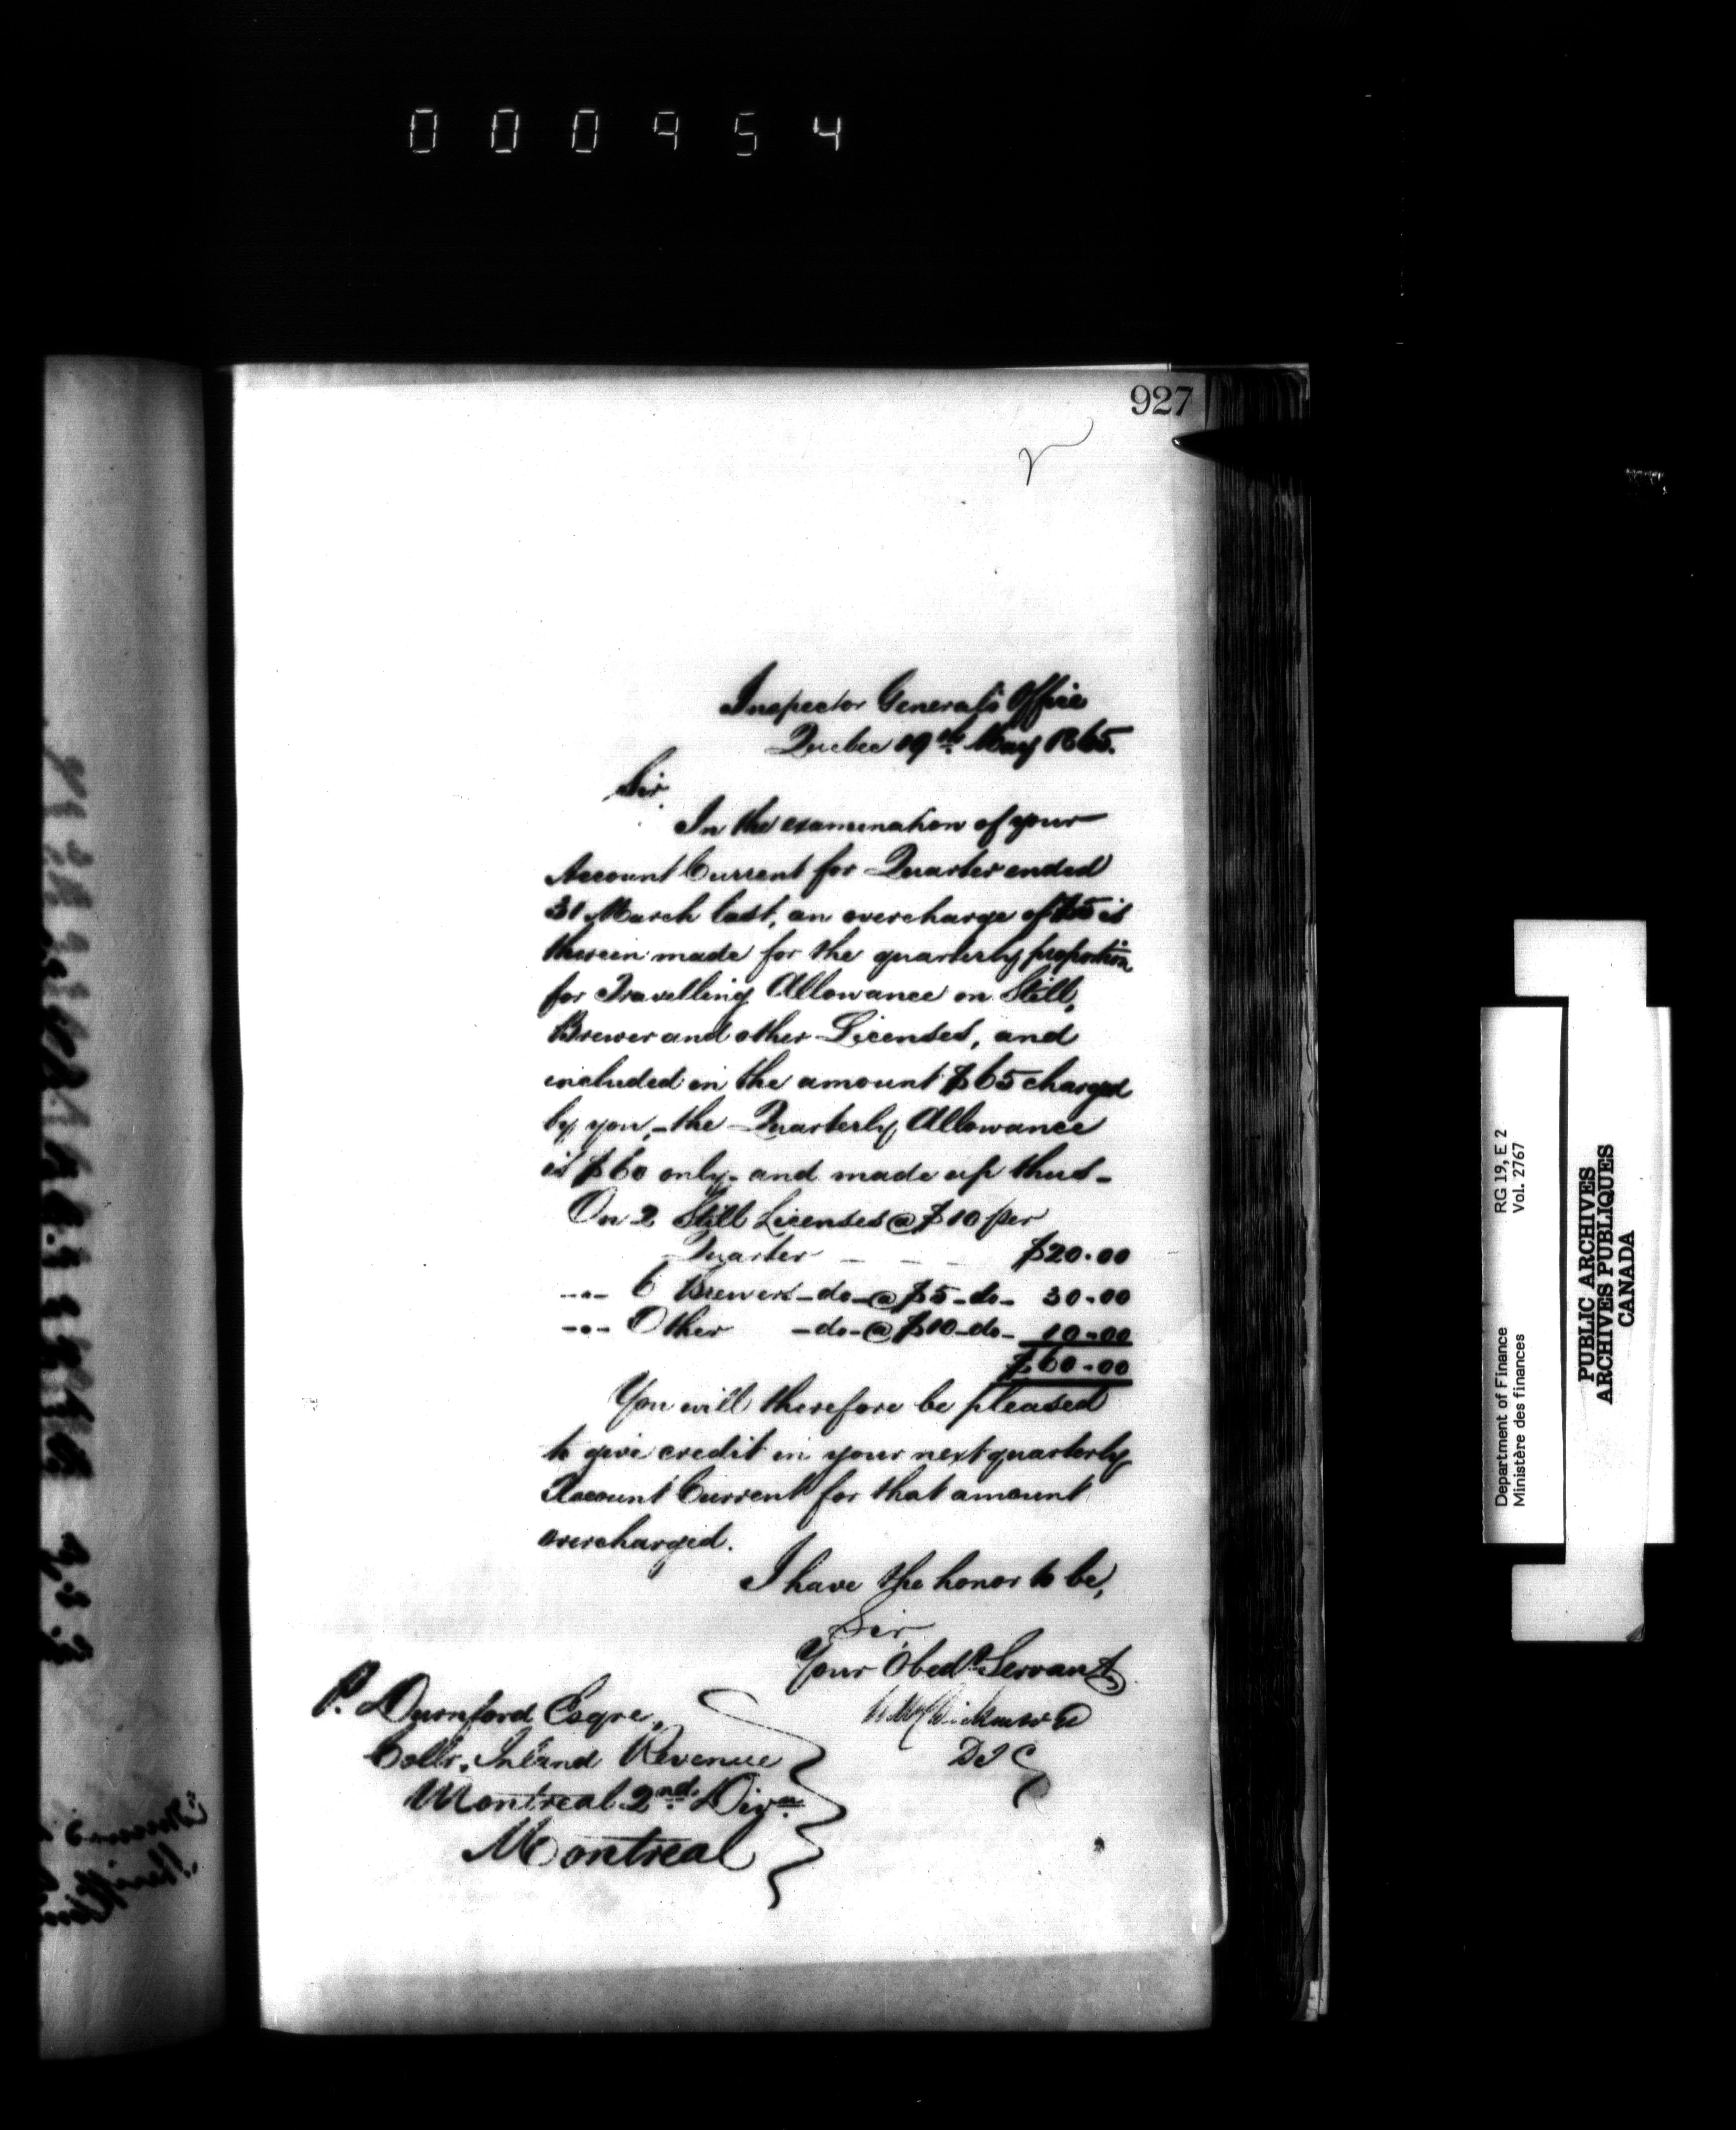 000954
927
Inspector General's Office
Quebec 19th May 1865.
Sir,
In the examination of your
Account Current for Quarter ended
31 March last, an overcharge of $5 is
therein made for the quarterly proportion
for Travelling Allowance on Still,
Brewer and other Licenses, and
included in the amount $65 charged
by you,- the Quarterly Allowance
is $60 only- and made up thus-
On 2 Still Licenses @ $10 per
Quarter - - - $20.00
-..- 6 Brewers -do- @ $5 -do- 30.00
-..- Other -do- @ $10 -do- 10.00
$60.00
You will therefore be pleased
to give credit in your next quarterly
Account Current for that amount
overcharged.
I have the honor to be,
Sir,
Your Obedt Servant
D I G
P. Durnford Esqre,
Collr. Inland Revenue
Montreal 2nd Divn
Montreal
Department of Finance RG 19, E 2
Ministère des finances Vol. 2767
PUBLIC ARCHIVES
ARCHIVES PUBLIQUES
CANADA